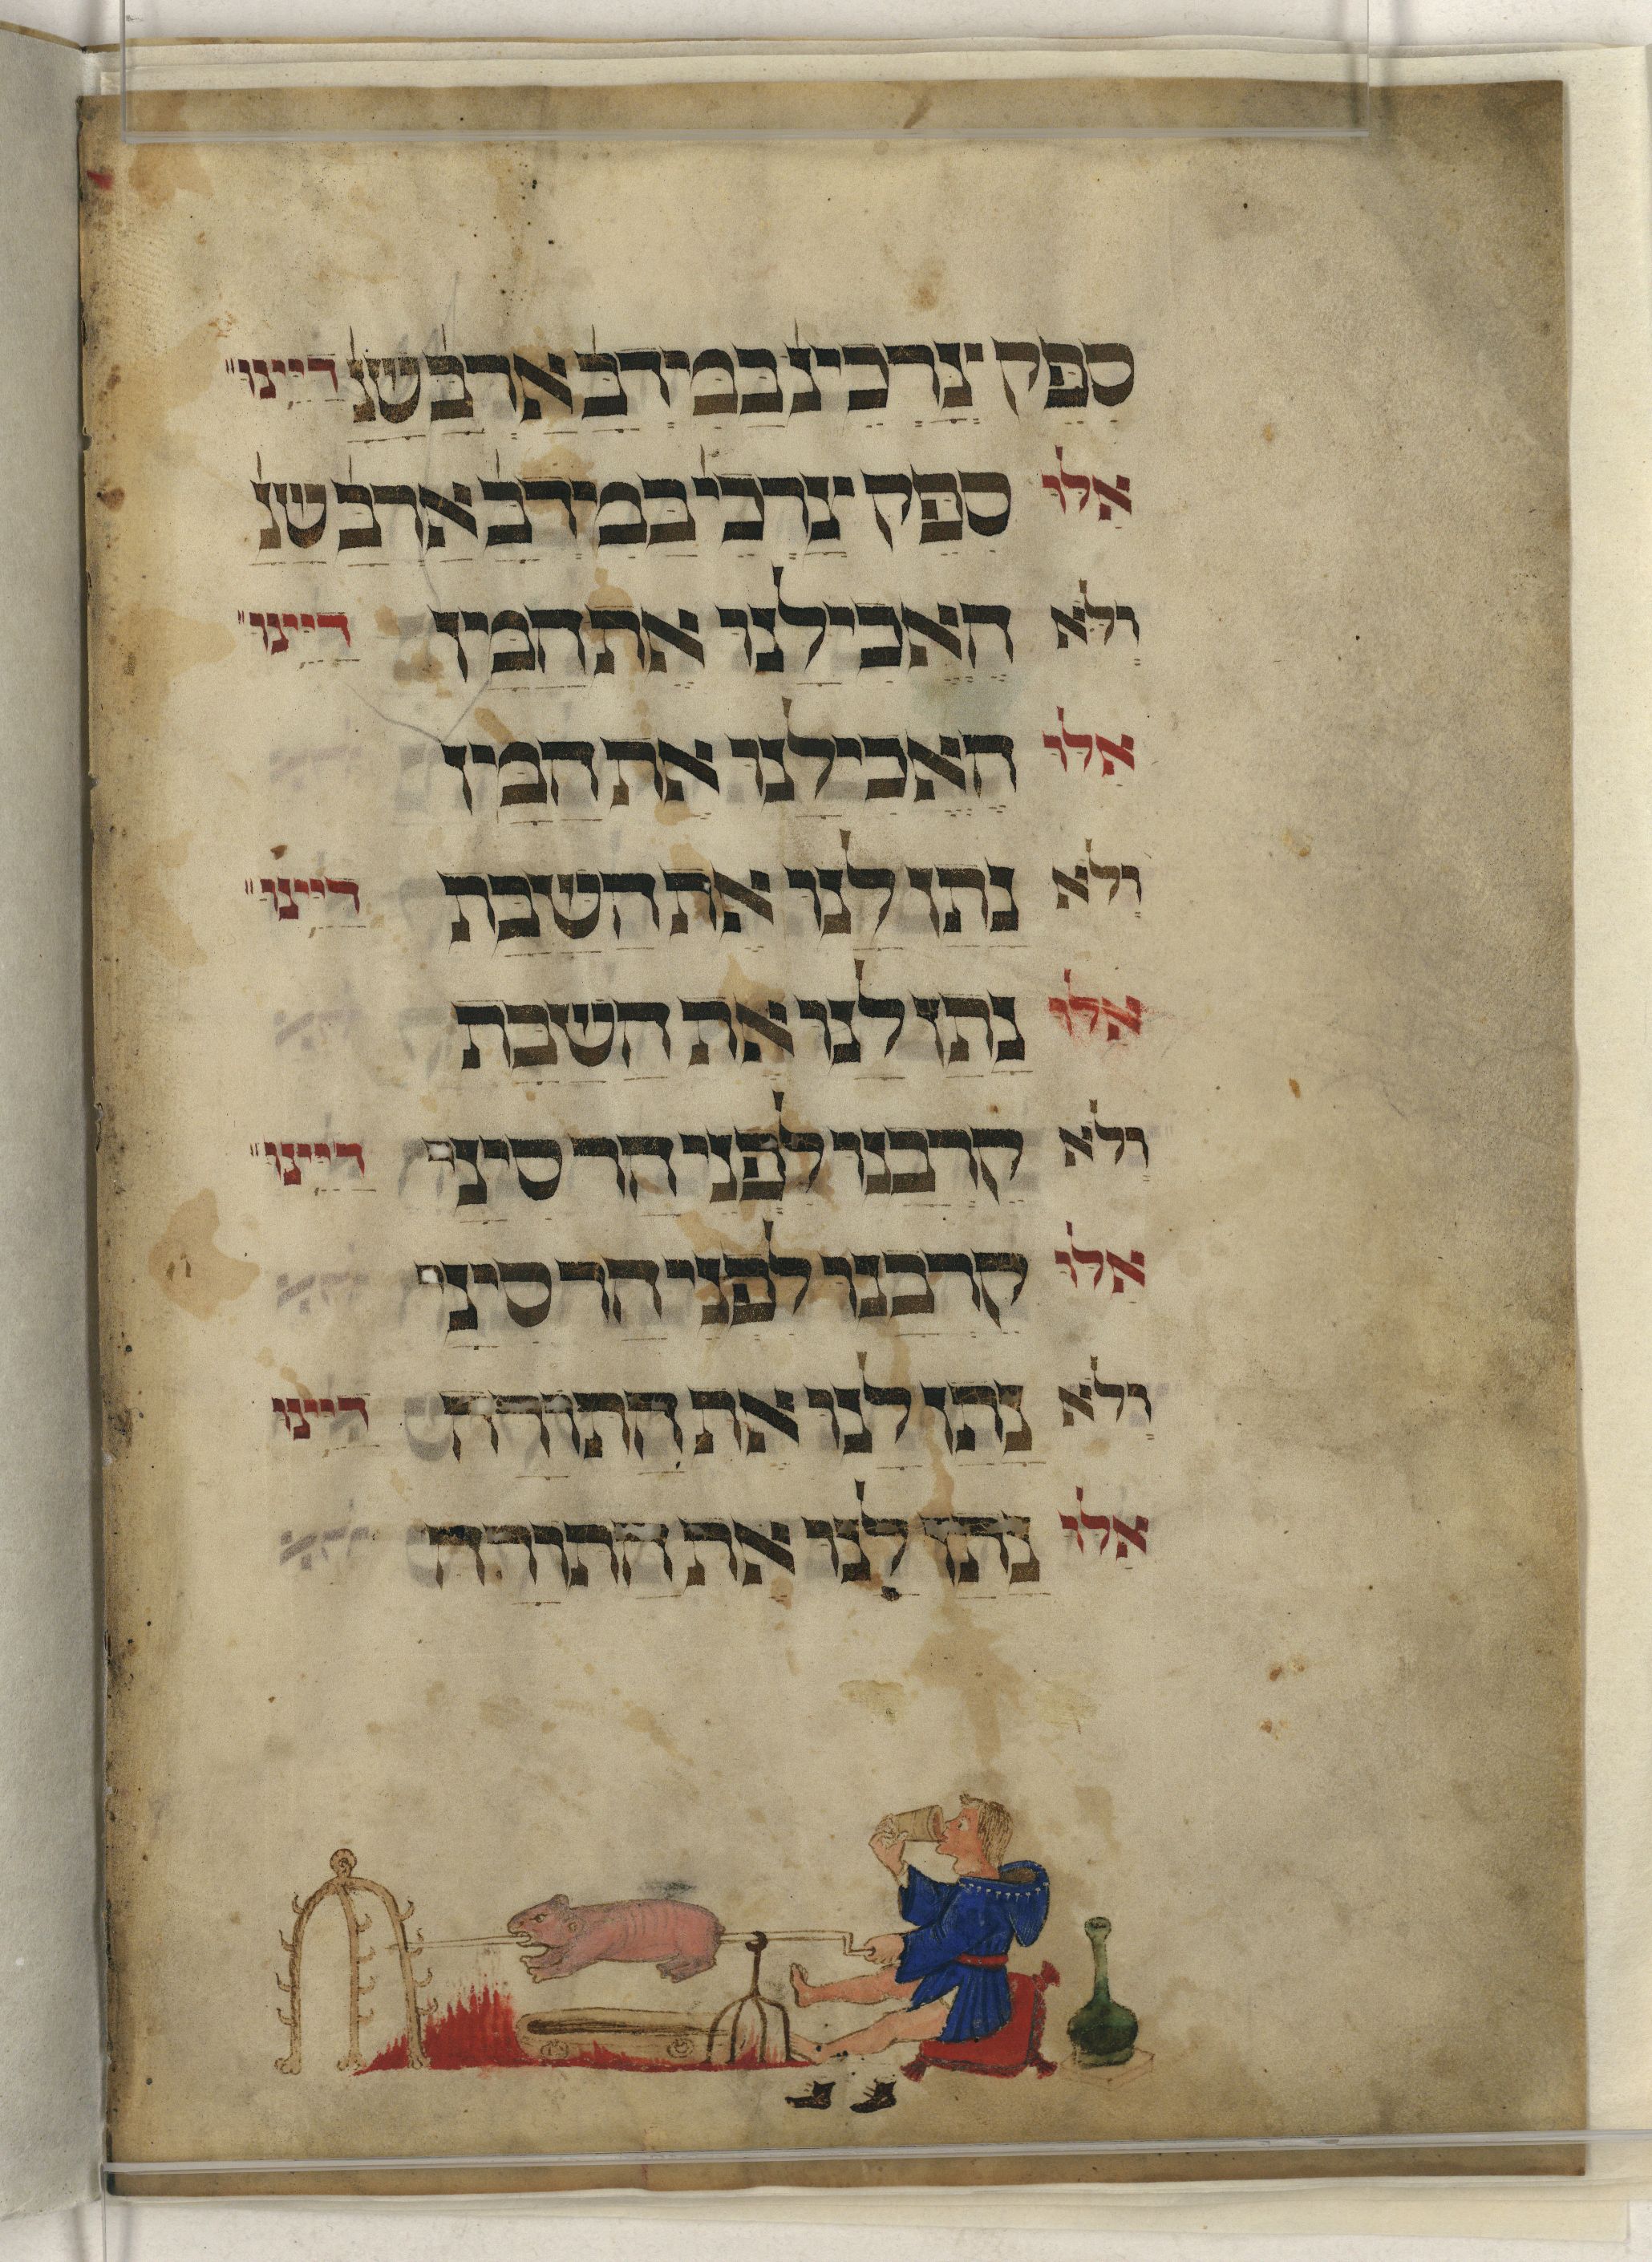 סִפֵּק צָרָכֵינ׳ בַּמִּידְבָּ׳ אַרְבַּ׳ שָׁנ׳ דַיֵּינוּ׃
אִלּוּ סִפֵּק צָרָכֵי׳ בַּמִּידְבָּ׳ אַרְבַּ׳ שָׁנ׳
וְלֹא הֶאֱכִילָנוּ אֶת הַמָּן דַיֵּינוּ׃
אִלּוּ הֶאֱכִילָנוּ אֶת הַמָּן
וְלֹא נָתַן לָנוּ אֶת הַשַּׁבָּת דַיֵּינוּ׃
אִלּוּ נָתַן לָנוּ אֶת הַשַּׁבָּת
וְלֹא קֵרְבָנוּ לִפְנֵי הַר סִינַי דַיֵּינוּ׃
אִלּוּ קֵרְבָנוּ לִפְנֵי הַר סִינַי
וְלֹא נָתַן לָנוּ אֶת הַתּוֹרָה דַיֵּינוּ
אִלּוּ נָתַן לָנוּ אֶת הַתּוֹרָה